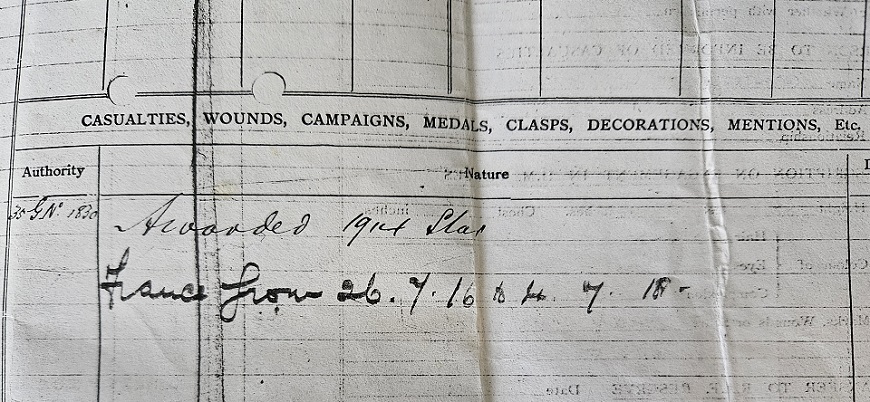 CASUALTIES, WOUNDS, CAMPAIGNS, MEDALS, CLASPS, DECORATIONS, MENTIONS, Etc.
Authority Nature
Awarded 1914 Star
France from 26.7.16 to 4 7. 18-